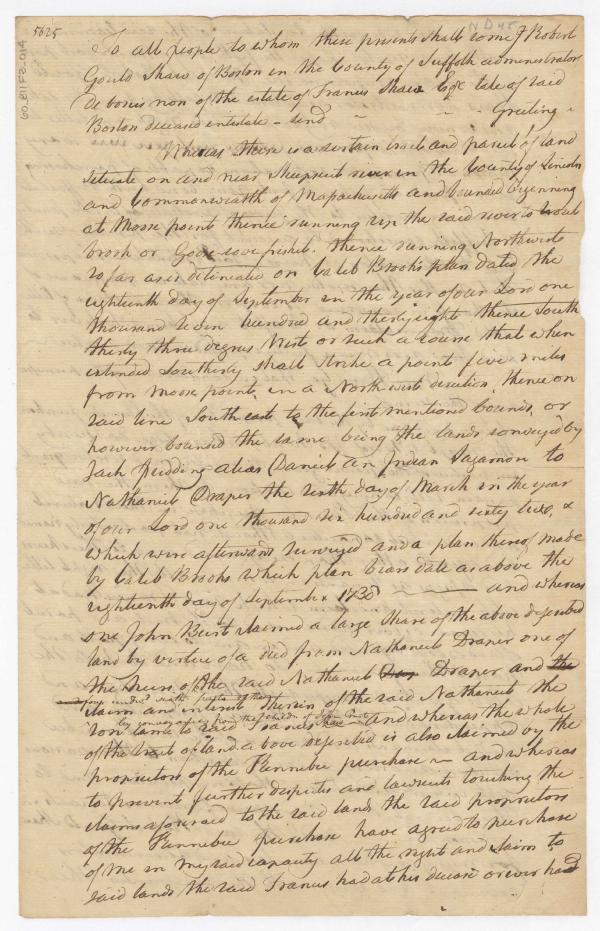 5625
ND 45
60_811F8_014
To all people to whom these presents shall come I Robert
Gould Shaw of Boston in the County of Suffolk administrator
De bonis non of the estate of Francis Shaw Esqr late of said
Boston deceased intestate - send Greeting
Whereas there is a certain tract and parcel of land
situate on and near Sheepscut river in the County of Lincoln
and Commonwealth of Massachusetts and bounded beginning
at Moose point thence running up the said river to trout
brook or Goose cove freshet. thence running Northwest
so far as is delineated on Caleb Brooks plan dated the
eighteenth day of September in the year of our Lord one
thousand seven hundred and thirty eight thence South
therly three degrees West or such a course that when
extended Southerly shall strike a point five miles
from Moose point, in a North west direction, thence on
said line South east to the first mentioned bounds, or
however bounded the same being the lands conveyed by
Jack Pudding alias Daniel an Indian Sagamon to
Nathaniel Draper the sixth day of March in the year
of our Lord one thousand six hundred and sixty two, &
which were afterwards surveyed and a plan thereof made
by Caleb Brooks which plan bears date as above the
eighteenth day of September 1738 and whereas
one John claimed a large share of the above described
land by virtue of a deed from Nathaniel Draper one of
the heirs of the said Nathaniel Draper and the
claim and interest therein of the said Nathaniel the
by conveyances from the children of John
son came to said Francis Shaw and whereas the whole
of the tract of land above described is also claimed by the
proprietors of the Plennebec purchase - and whereas
to prevent further disputes and lawsuits touching the
claims aforesaid to the said lands the said proprietors
of the Plennebec purchase have agreed to purchase
of me in my said capacity all the right and claim to
said lands the said Francis had at his decease or ever had